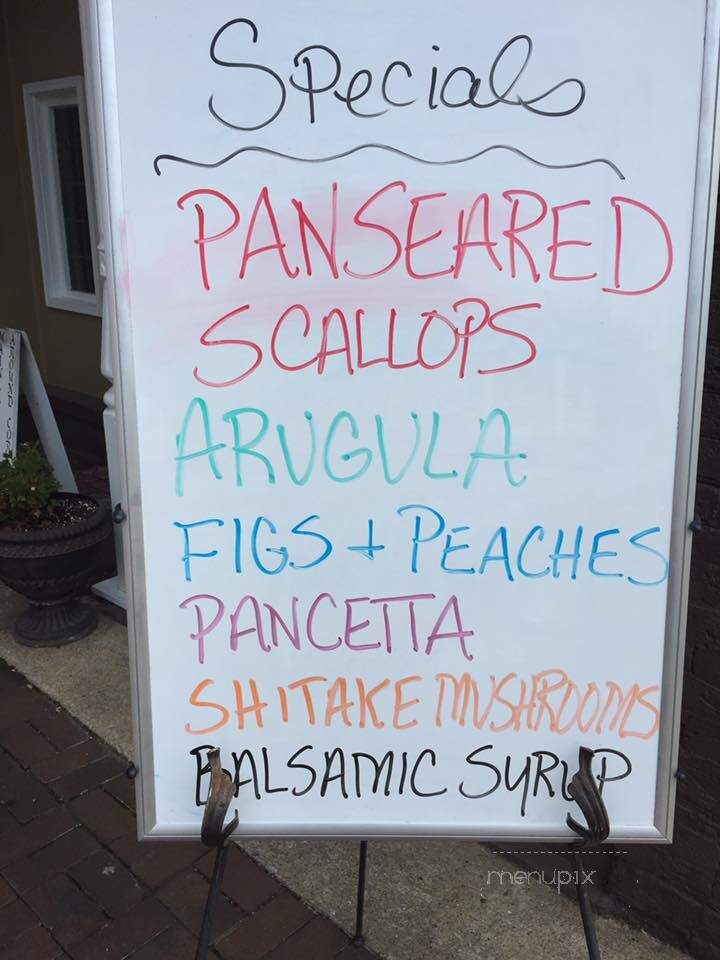 Specials
PANSEARED
SCALLOPS
ARUGULA
FIGS + PEACHES
PANCETTA
SHITAKE MUSHROOMS
BALSAMIC SYRUP
menupix